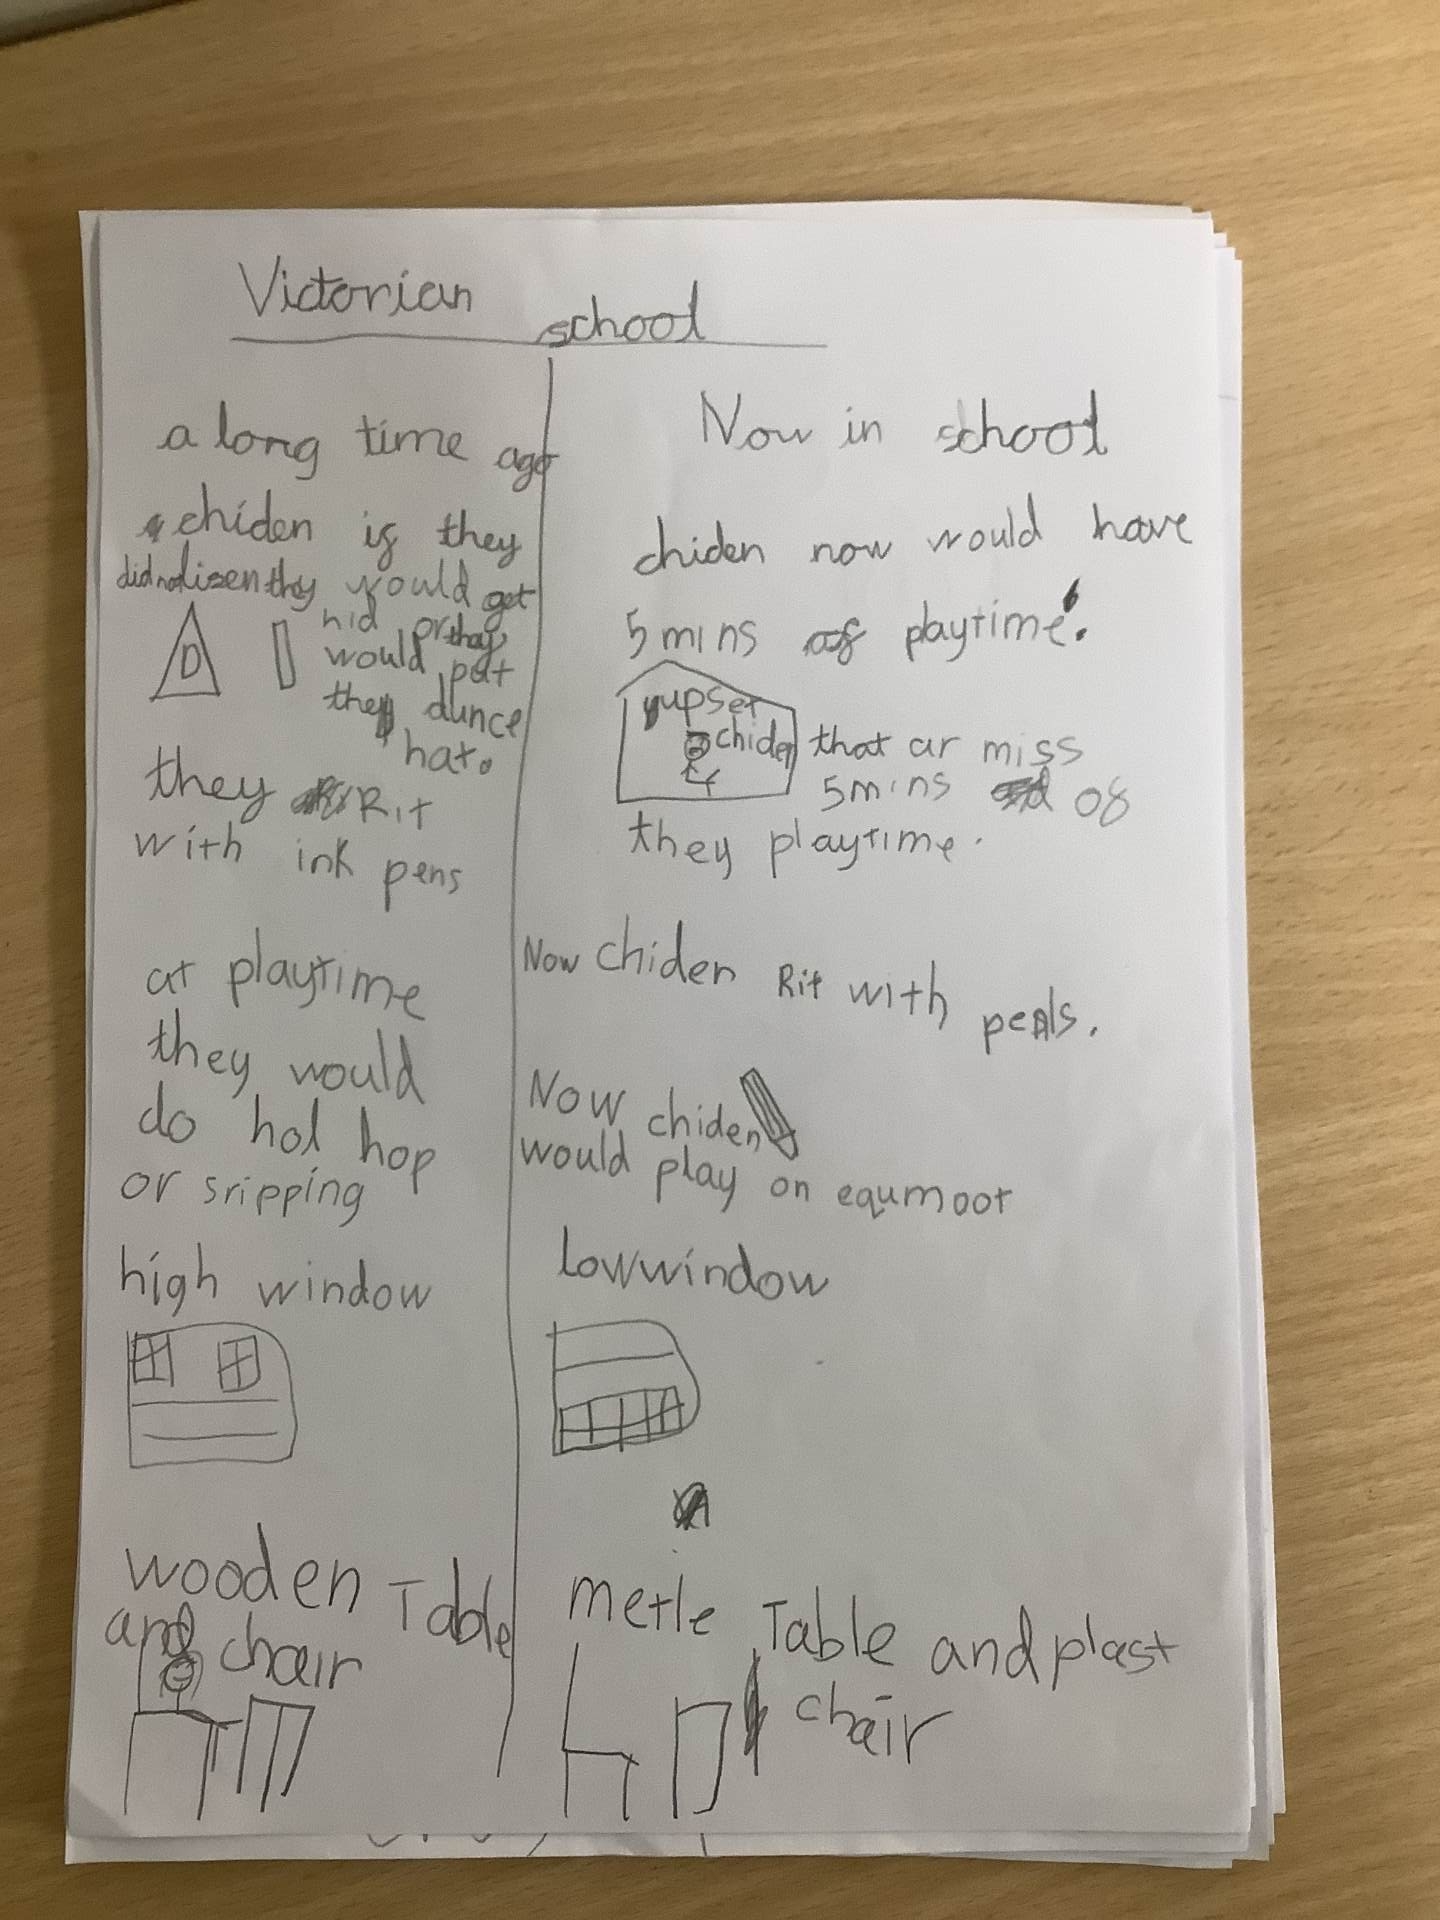 Victorian school
a long time ago
chiden if they
did not lisen they would get
hid or they
would put
they dunce
hat.
D
they Rit
with ink pens
at playtime
they would
do hol hop
or sripping
high window
wooden Table
and chair
Now in school
chiden now would have
5 mins of playtime.
upset
chiden that ar miss
5mins of
they playtime.
Now chiden Rit with penls.
Now chiden
would play on equmoot
low window
metle Table and plast
chair